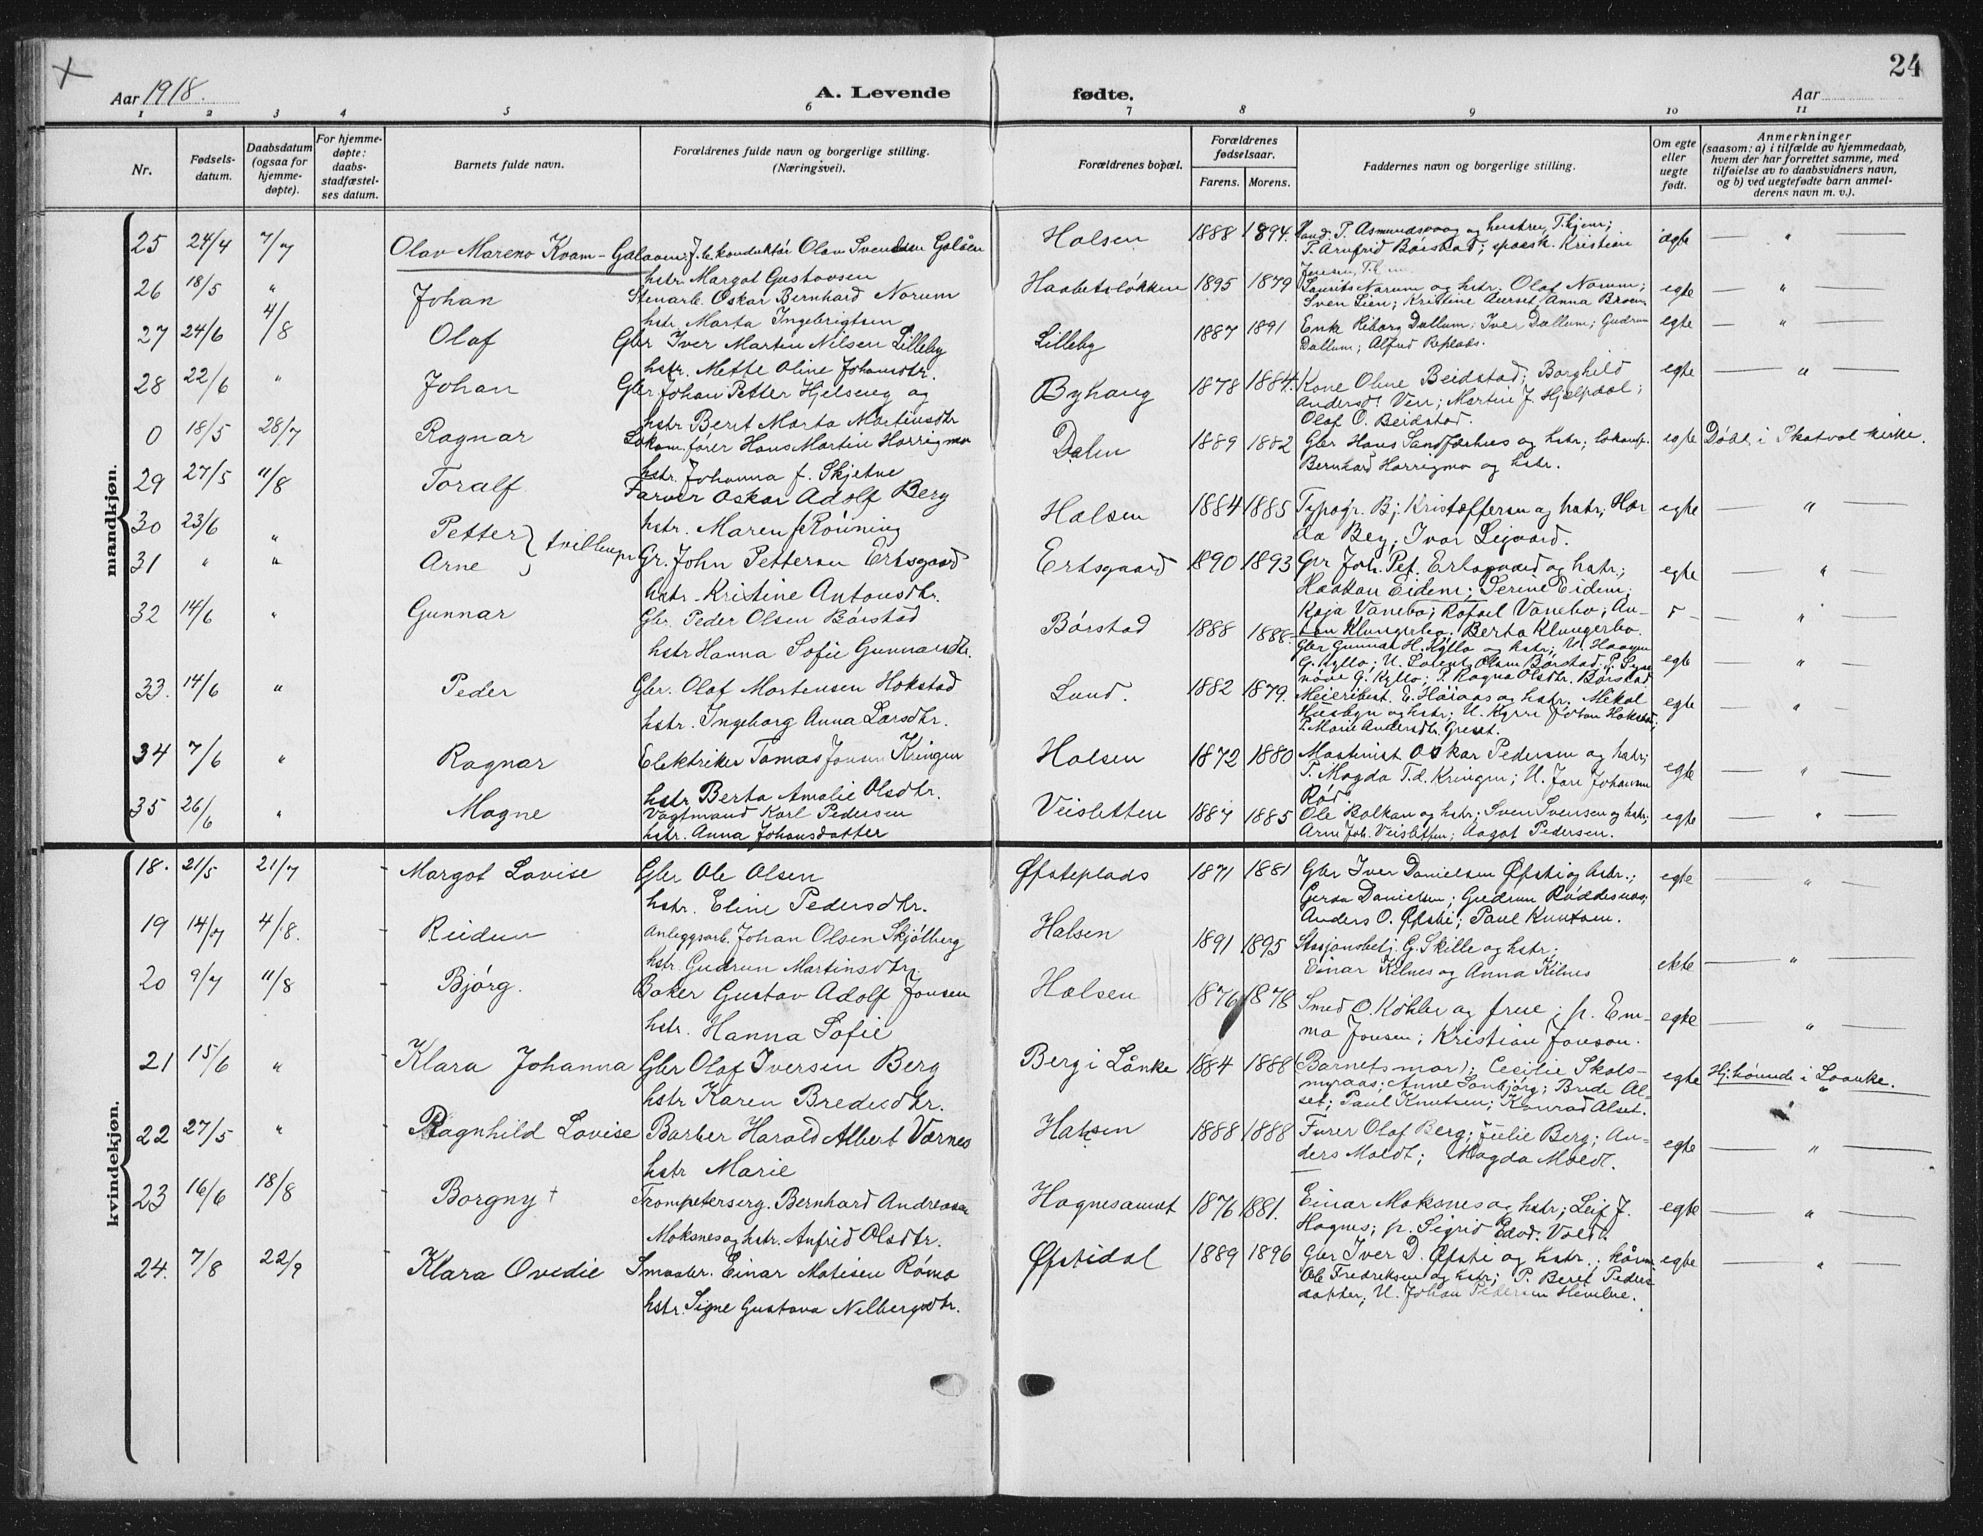 24
Aar 1918. A. Levende fødte. Aar
1 2 3 4 5 6 7 8 9 10 11
Nr. Fødselsdatum. Daabsdatum (ogsaa for hjemmedøpte). For hjemmedøpte: daabsstadfæstelses datum. Barnets fulde navn. Forældrenes fulde navn og borgerlige stilling. (Næringsvei). Forældrenes bopæl. Forældrenes fødselsaar. Farens. Morens. Faddernes navn og borgerlige stilling. Om egte eller uegte født. Anmerkninger (saasom: a) i tilfælde av hjemmedaab, hvem der har forrettet samme, med tilføielse av to daabsvidners navn, og b) ved uegtefødte barn anmelderens navn m. v.).
mandkjøn.
25 24/4 7/7 Olav Mareno Kvam-Galaaen J.b.konduktør Olav Svendsen Galåen Halsen 1888 1894 T. Asmundsvaag og hustru, T.hjem; egte — " —
hstr. Margot Gustavsen T. Arnfrid Børstad; Kristian Jonsen,
26 18/5 " Johan Stenarb. Oskar Bernhard Norum Haabetsløkken 1895 1879 Laurits Norum og hstr; Olaf Norum; egte — " —
hstr. Marta Ingebrigtsen Sven Lien; Kristine Aurset; Anna Broen
27 24/6 4/8 Olaf Gbr Iver Martin Nilsen Lilleby Lilleby 1887 1891 Enk. Riborg Dullum; Iver Dullum; Gudrun egte — " —
hstr. Mette Oline Johansdtr. Dullum; Alfred Replads.
28 22/6 " Johan Gbr Johan Petter Hjelseng og Byhaug 1878 1884. Kone Oline Beidstad; Borghild egte — " —
hstr Berit Marta Martinsdtr Andersdt. Ven; Martin J. Hjelpdal; Olaf O. Beidstad.
0 18/5 28/7 Ragnar Lokom.fører Hans Martin Harrigmo Dalen 1889 1882 Gbr Hans Sandfærhus og hstr; Lokomf. egte Døbt i Skatval kirke.
hstr. Johanna f. Skjetne Bernhard Harrigmo og hstr.
29 27/5 11/8 Toralf Farver Oskar Adolf Berg Halsen 1884 1885 Typogr. B. Kristoffersen og hstr; Harda Berg; Ivar Ligaard. egte — " —
hstr. Maren f. Rønning
30 23/6 " Petter } tvillinger
31 " " Arne Gr. John Petterson Ertsgaard Ertsgaard 1890 1893 Gbr Joh. Pet. Ertsgaard og hstr; egte — " —
hstr. Kristine Antonsdtr. Haakon Eidem; Serine Eidem;
Kaja Vanebo; Rafael Vanebo; Anton Klungerbo; Berta Klungerbo.
32 14/6 " Gunnar Gbr. Peder Olsen Børstad Børstad 1888 1888. Gbr Gunnar H. Kyllo og hstr; U. Haagen egte — " —
hstr Hanna Sofie Gunnarsdtr. G. Kyllo; U. Lorents Olsen Børstad; P. Synnøve G. Kyllo; P. Ragna Olsdtr. Børstad
33. 14/6 " Peder Gbr. Olaf Mortensen Hokstad Lund. 1882 1879. Meieribest. E. Høiaas og hstr. Mekal egte — " —
hstr. Ingeborg Anna Larsdtr. Husbyn og hstr; U. Johan Hokstad; P. Marie Andersdtr. Græset.
34 7/6 " Ragnar Elektriker Tomas Jonsen Kringen Halsen 1872 1880 Maskinist Oskar Pedersen og hstr; egte — " —
hstr Berta Amalie Olsdtr. P. Magda T.d. Kringen; U. Jon Johannes Rød.
35 26/6 " Magne Vagtmand Karl Pedersen Veisletten 1887 1885 Ole Balkan og hstr; Sven Svensen og hstr; egte — " —
hstr. Anna Johansdatter Arne Joh. Veisletten; Aagot Pedersen.
kvindekjøn.
18. 21/5 21/7 Margot Lovise Gbr Ole Olsen Øfsteplads 1871 1881 Gbr Iver Danielsen Øfsti og hstr.; egte — " —
hstr. Eline Pedersdtr. Danielsen; Gudrun Røddesnes; Anders O. Øfsti; Paul Knutsen.
19 14/7 4/8. Reidun Anleggsarb. Johan Olsen Skjølberg Halsen 1891 1895 Stasjonsbetj. G. Skille og hstr; ekte — " —
hstr. Gudrun Martinsdtr. Einar Kilnes og Anna Kilnes
20 9/7 11/8 Bjørg. Baker Gustav Adolf Jonsen Halsen 1876 1878 Smed O. Køhler og frue; p. Emma Jonsen; Kristian Jonson. egte — " —
hstr. Hanna Sofie
21 15/6 " Klara Johanna Gbr Olaf Iversen Berg Berg i Lånke 1884 1888 (Barnets mor); Cecilie Skolsmyraas; Anne Sonbjørg; Brude Alset; Paul Knutsen; Konrad Alset. egte Hj.hørende i Laanke.
hstr Karen Bredesdtr.
22 27/5 " Ragnhild Lovise Barber Harald Albert Værnes Halsen 1888 1888 Furer Olaf Berg; Julie Berg; Anders Moldt; Magda Moldt. egte — " —
hstr Marie
23 16/6 18/8 Borgny + Trompeterserg. Bernhard Andreassen Hognesaunet 1876 1881. Einar Moksnes og hstr; Leif J. egte — " —
Moksnes og hstr. Anfrid Olsdtr. Hognes; p. Sigrid Edvd. Voldt.
24. 7/8 22/9 Klara Ovedie Smaabr. Einar Matisen Rømo Øfstidal 1889 1896 Gbr Iver D. Øfsti og hstr.; egte — " —
hstr. Signe Gustava Nilbergsdtr. Ole Fredriksen og hstr; P. Berit Pedersdatter; U. Johan Pedersen